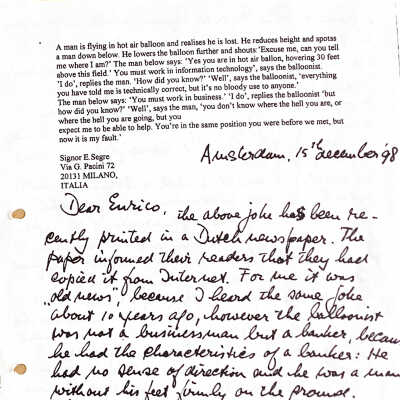 A man is flying in hot air balloon and realises he is lost. He reduces height and spotss
a man down below. He lowers the balloon further and shouts 'Excuse me, can you tell
me where I am?' The man below says: 'Yes you are in hot air ballon, hovering 30 feet
above this field.' You must work in information technology', says the balloonist.
'I do', replies the man. 'How did you know?' 'Well', says the balloonist, 'everything
you have told me is technically correct, but it's no bloody use to anyone.'
The man below says: 'You must work in business.' 'I do', replies the balloonist 'but
how did you know?' 'Well', says the man, 'you don't know where the hell you are, or
where the hell you are going, but you
expect me to be able to help. You're in the same position you were before we met, but
now it is my fault.'
Signor E.Segre
Via G. Pacini 72
20131 MILANO,
ITALIA
Amsterdam, 15th december '98
Dear Enrico, the above joke has been re-
cently printed in a Dutch newspaper. The
paper informed their readers that they had
copied it from Internet. For me it was
"old news", because I heard the same joke
about 10 years ago, however the balloonist
was not a businessman but a banker, becau
he had the characteristics of a banker: He
had no sense of direction and he was a man
without his feet firmly on the ground.